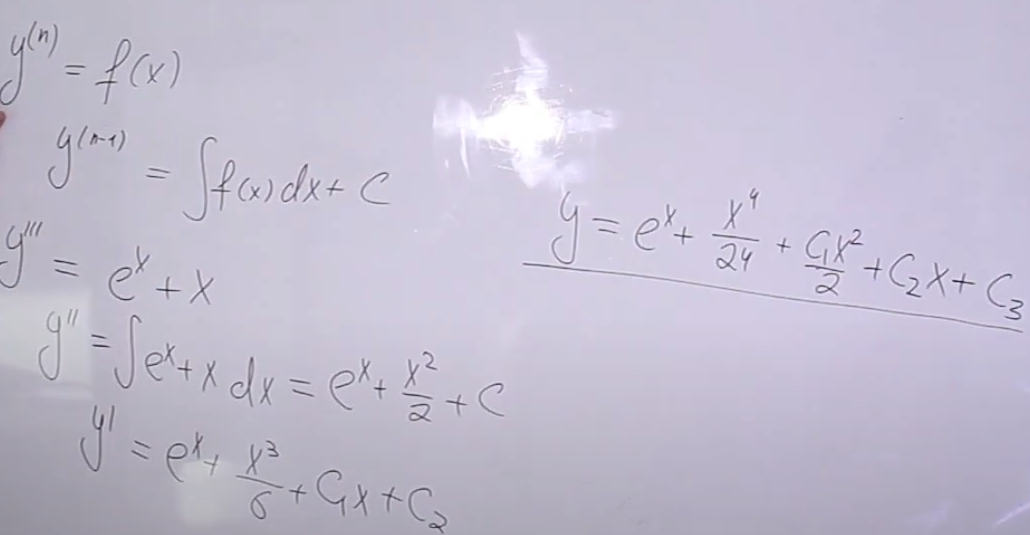 y⁽ⁿ⁾ = f(x)
y⁽ⁿ⁻¹⁾ = ∫f(x)dx + C
y''' = eˣ + x
y'' = ∫eˣ + x dx = eˣ + x²/2 + C
y' = eˣ + x³/6 + C₁x + C₂
y = eˣ + x⁴/24 + C₁x²/2 + C₂x + C₃